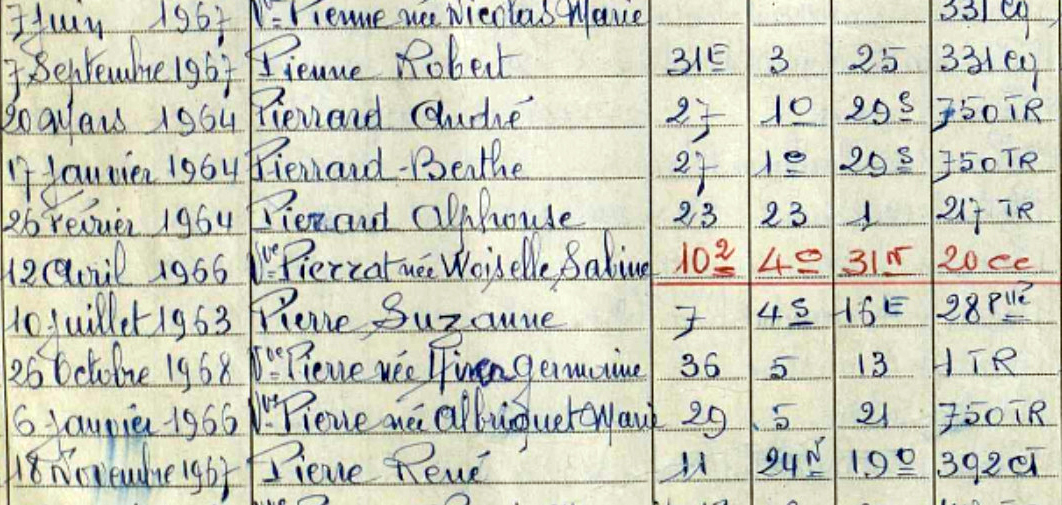 7 Juin 1967 Vve Pienne née Nicolas Marie 331 CQ
7 Septembre 1967 Pienne Robert 31E 3 25 331 CQ
20 Mars 1964 Pierrard André 27 1O 29S 750 TR
17 Janvier 1964 Pierrard-Berthe 27 1O 29S 750 TR
26 Février 1964 Pierard Alphonse 23 23 1 217 TR
12 Avril 1966 Vve Pierrat née Woiselle Sabine 102 4O 31N 20 CC
10 Juillet 1963 Pierre Suzanne 7 4S 16E 28 Plle
26 Octobre 1968 Vve Pierre née Germaine 36 5 13 1 TR
6 Janvier 1966 Vve Pierre née Albriquet Marie 29 5 21 750 TR
18 Novembre 1967 Pierre René 11 24N 19O 392 CT